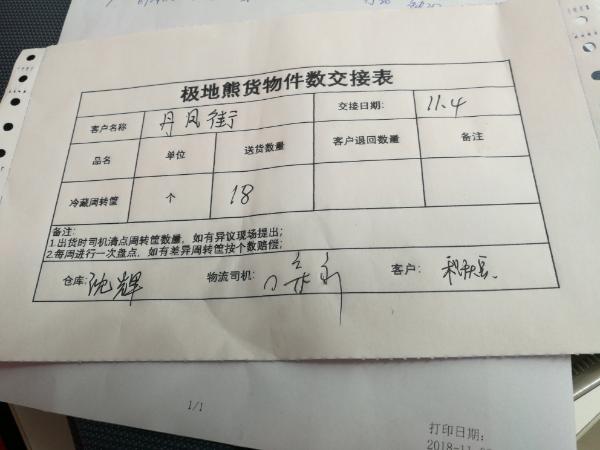 极地熊货物件数交接表
客户名称 丹凤街 交接日期: 11.4
品名 单位 送货数量 客户退回数量 备注
冷藏周转筐 个 18
备注:
1.出货时司机清点周转筐数量，如有异议现场提出;
2.每周进行一次盘点，如有差异周转筐按个数赔偿;
仓库: 沈辉 物流司机: 客户:
1/1
打印日期:
2018-11